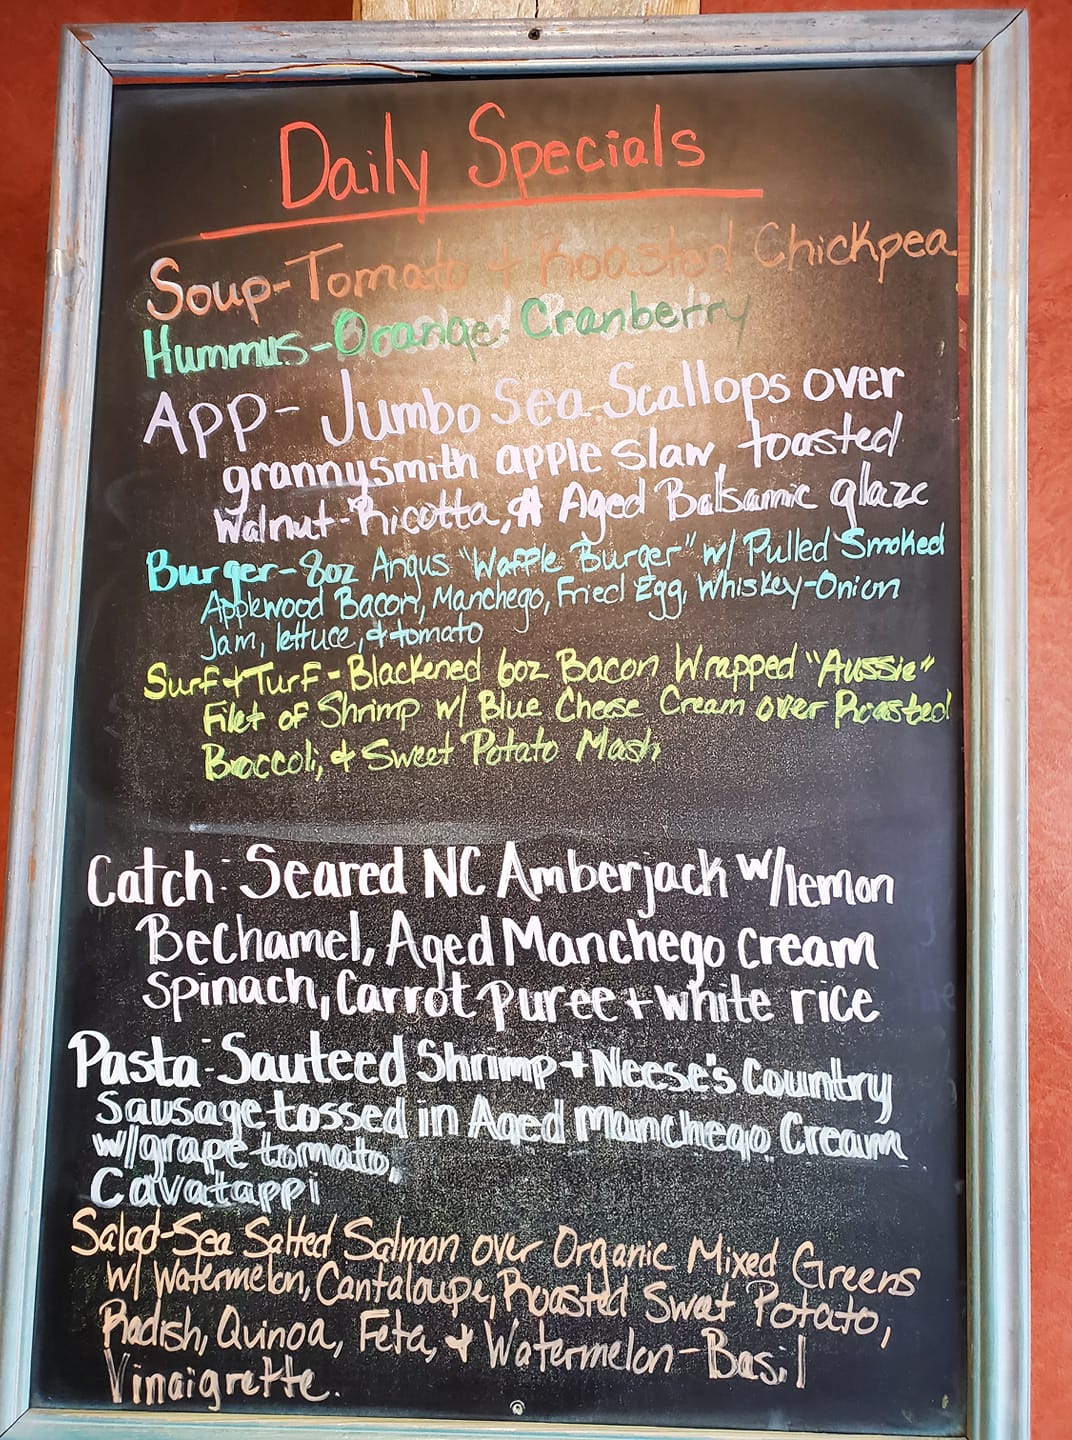 Daily Specials
Soup-Tomato + Roasted Chickpea
Hummus-Orange Cranberry
App- Jumbo Sea Scallops over
grannysmith apple slaw, toasted
Walnut-Ricotta, & Aged Balsamic glaze
Burger-8oz Angus "Waffle Burger" w/ Pulled Smoked
Applewood Bacon, Manchego, Fried Egg, Whiskey-Onion
Jam, lettuce, & tomato
Surf+Turf-Blackened 6oz Bacon Wrapped "Aussie"
Filet of Shrimp w/ Blue Cheese Cream over Roasted
Broccoli, & Sweet Potato Mash
Catch: Seared NC Amberjack w/lemon
Bechamel, Aged Manchego cream
Spinach, Carrot puree + white rice
Pasta: Sauteed Shrimp + Neese's Country
Sausage tossed in Aged Manchego Cream
w/grape tomato,
Cavatappi
Salad-Sea Salted Salmon over Organic Mixed Greens
w/ Watermelon, Cantaloupe, Roasted Sweet Potato,
Radish, Quinoa, Feta, & Watermelon-Basil
Vinaigrette.